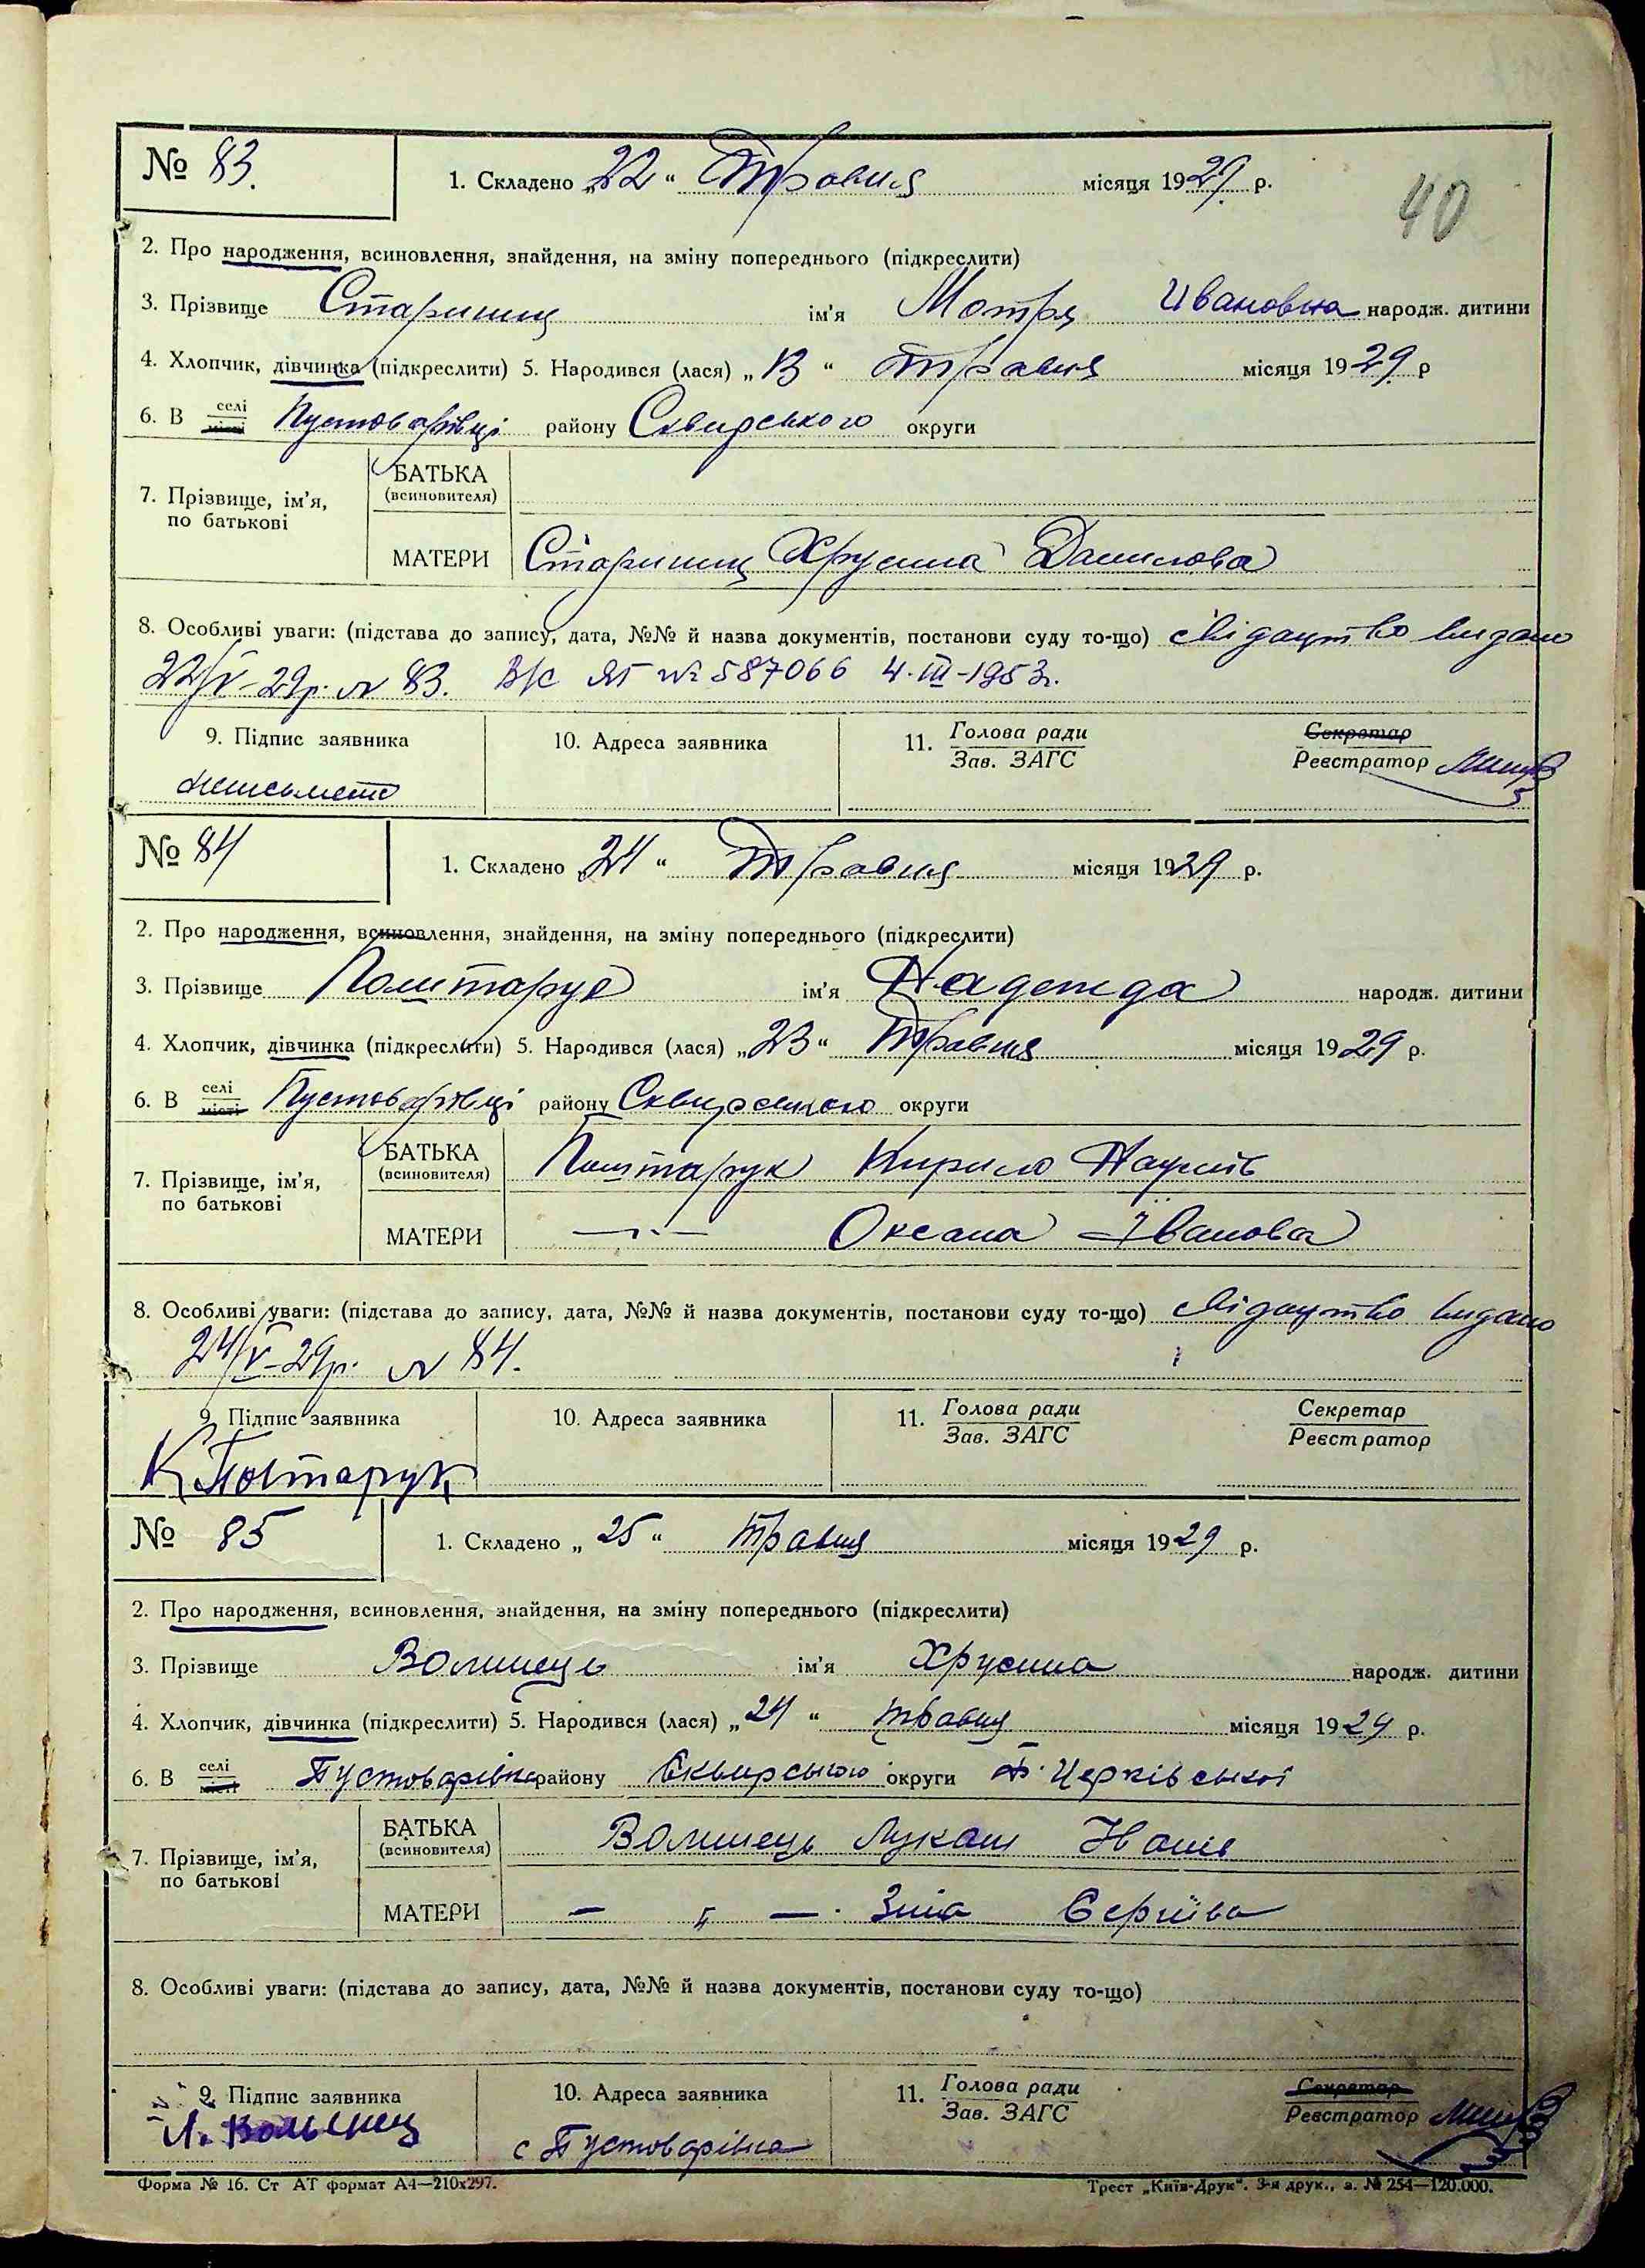 40
№ 83. 1. Складено „22“ Травня місяця 1929 р.
2. Про народження, всиновлення, знайдення, на зміну попереднього (підкреслити)
3. Прізвище ім'я Мотря Ивановна народж. дитини
4. Хлопчик, дівчинка (підкреслити) 5. Народився (лася) „13“ травня місяця 1929 р
6. В селі місті Пустоварівці району Сквирського округи
7. Прізвище, ім'я, по батькові
БАТЬКА (всиновителя)
МАТЕРИ Хрусина Данилова
8. Особливі уваги: (підстава до запису, дата, №№ й назва документів, постанови суду то-що) свідоцтво видано
22/V-29р. № 83. В/с ЯГ № 587066 4.III-1953г.
9. Підпис заявника 10. Адреса заявника 11. Голова ради Зав. ЗАГС Секретар Реєстратор
неписьмена
№ 84 1. Складено „24“ Травня місяця 1929 р.
2. Про народження, всиновлення, знайдення, на зміну попереднього (підкреслити)
3. Прізвище Поштарук ім'я Надежда народж. дитини
4. Хлопчик, дівчинка (підкреслити) 5. Народився (лася) „23“ Травня місяця 1929 р.
6. В селі місті Пустоварівці району Сквирського округи
7. Прізвище, ім'я, по батькові
БАТЬКА (всиновителя) Поштарук Кирило Наумів
МАТЕРИ —„— Оксана Іванова
8. Особливі уваги: (підстава до запису, дата, №№ й назва документів, постанови суду то-що) свідоцтво видано
24/V-29р. № 84.
9. Підпис заявника 10. Адреса заявника 11. Голова ради Зав. ЗАГС Секретар Реєстратор
К Поштарук
№ 85 1. Складено „25“ травня місяця 1929 р.
2. Про народження, всиновлення, знайдення, на зміну попереднього (підкреслити)
3. Прізвище Волинець ім'я Хрусина народж. дитини
4. Хлопчик, дівчинка (підкреслити) 5. Народився (лася) „24“ травня місяця 1929 р.
6. В селі місті Пустоварівка району Сквирського округи Б. Церківської
7. Прізвище, ім'я, по батькові
БАТЬКА (всиновителя) Волинець Лукаш
МАТЕРИ — „ —. Зінa Сергіїва
8. Особливі уваги: (підстава до запису, дата, №№ й назва документів, постанови суду то-що)
9. Підпис заявника 10. Адреса заявника 11. Голова ради Зав. ЗАГС Секретар Реєстратор
Л. Волынец с Пустоварівка
Форма № 16. Ст АТ формат А4—210х297. Трест „Київ-Друк“. 3-я друк., з. № 254—120.000.